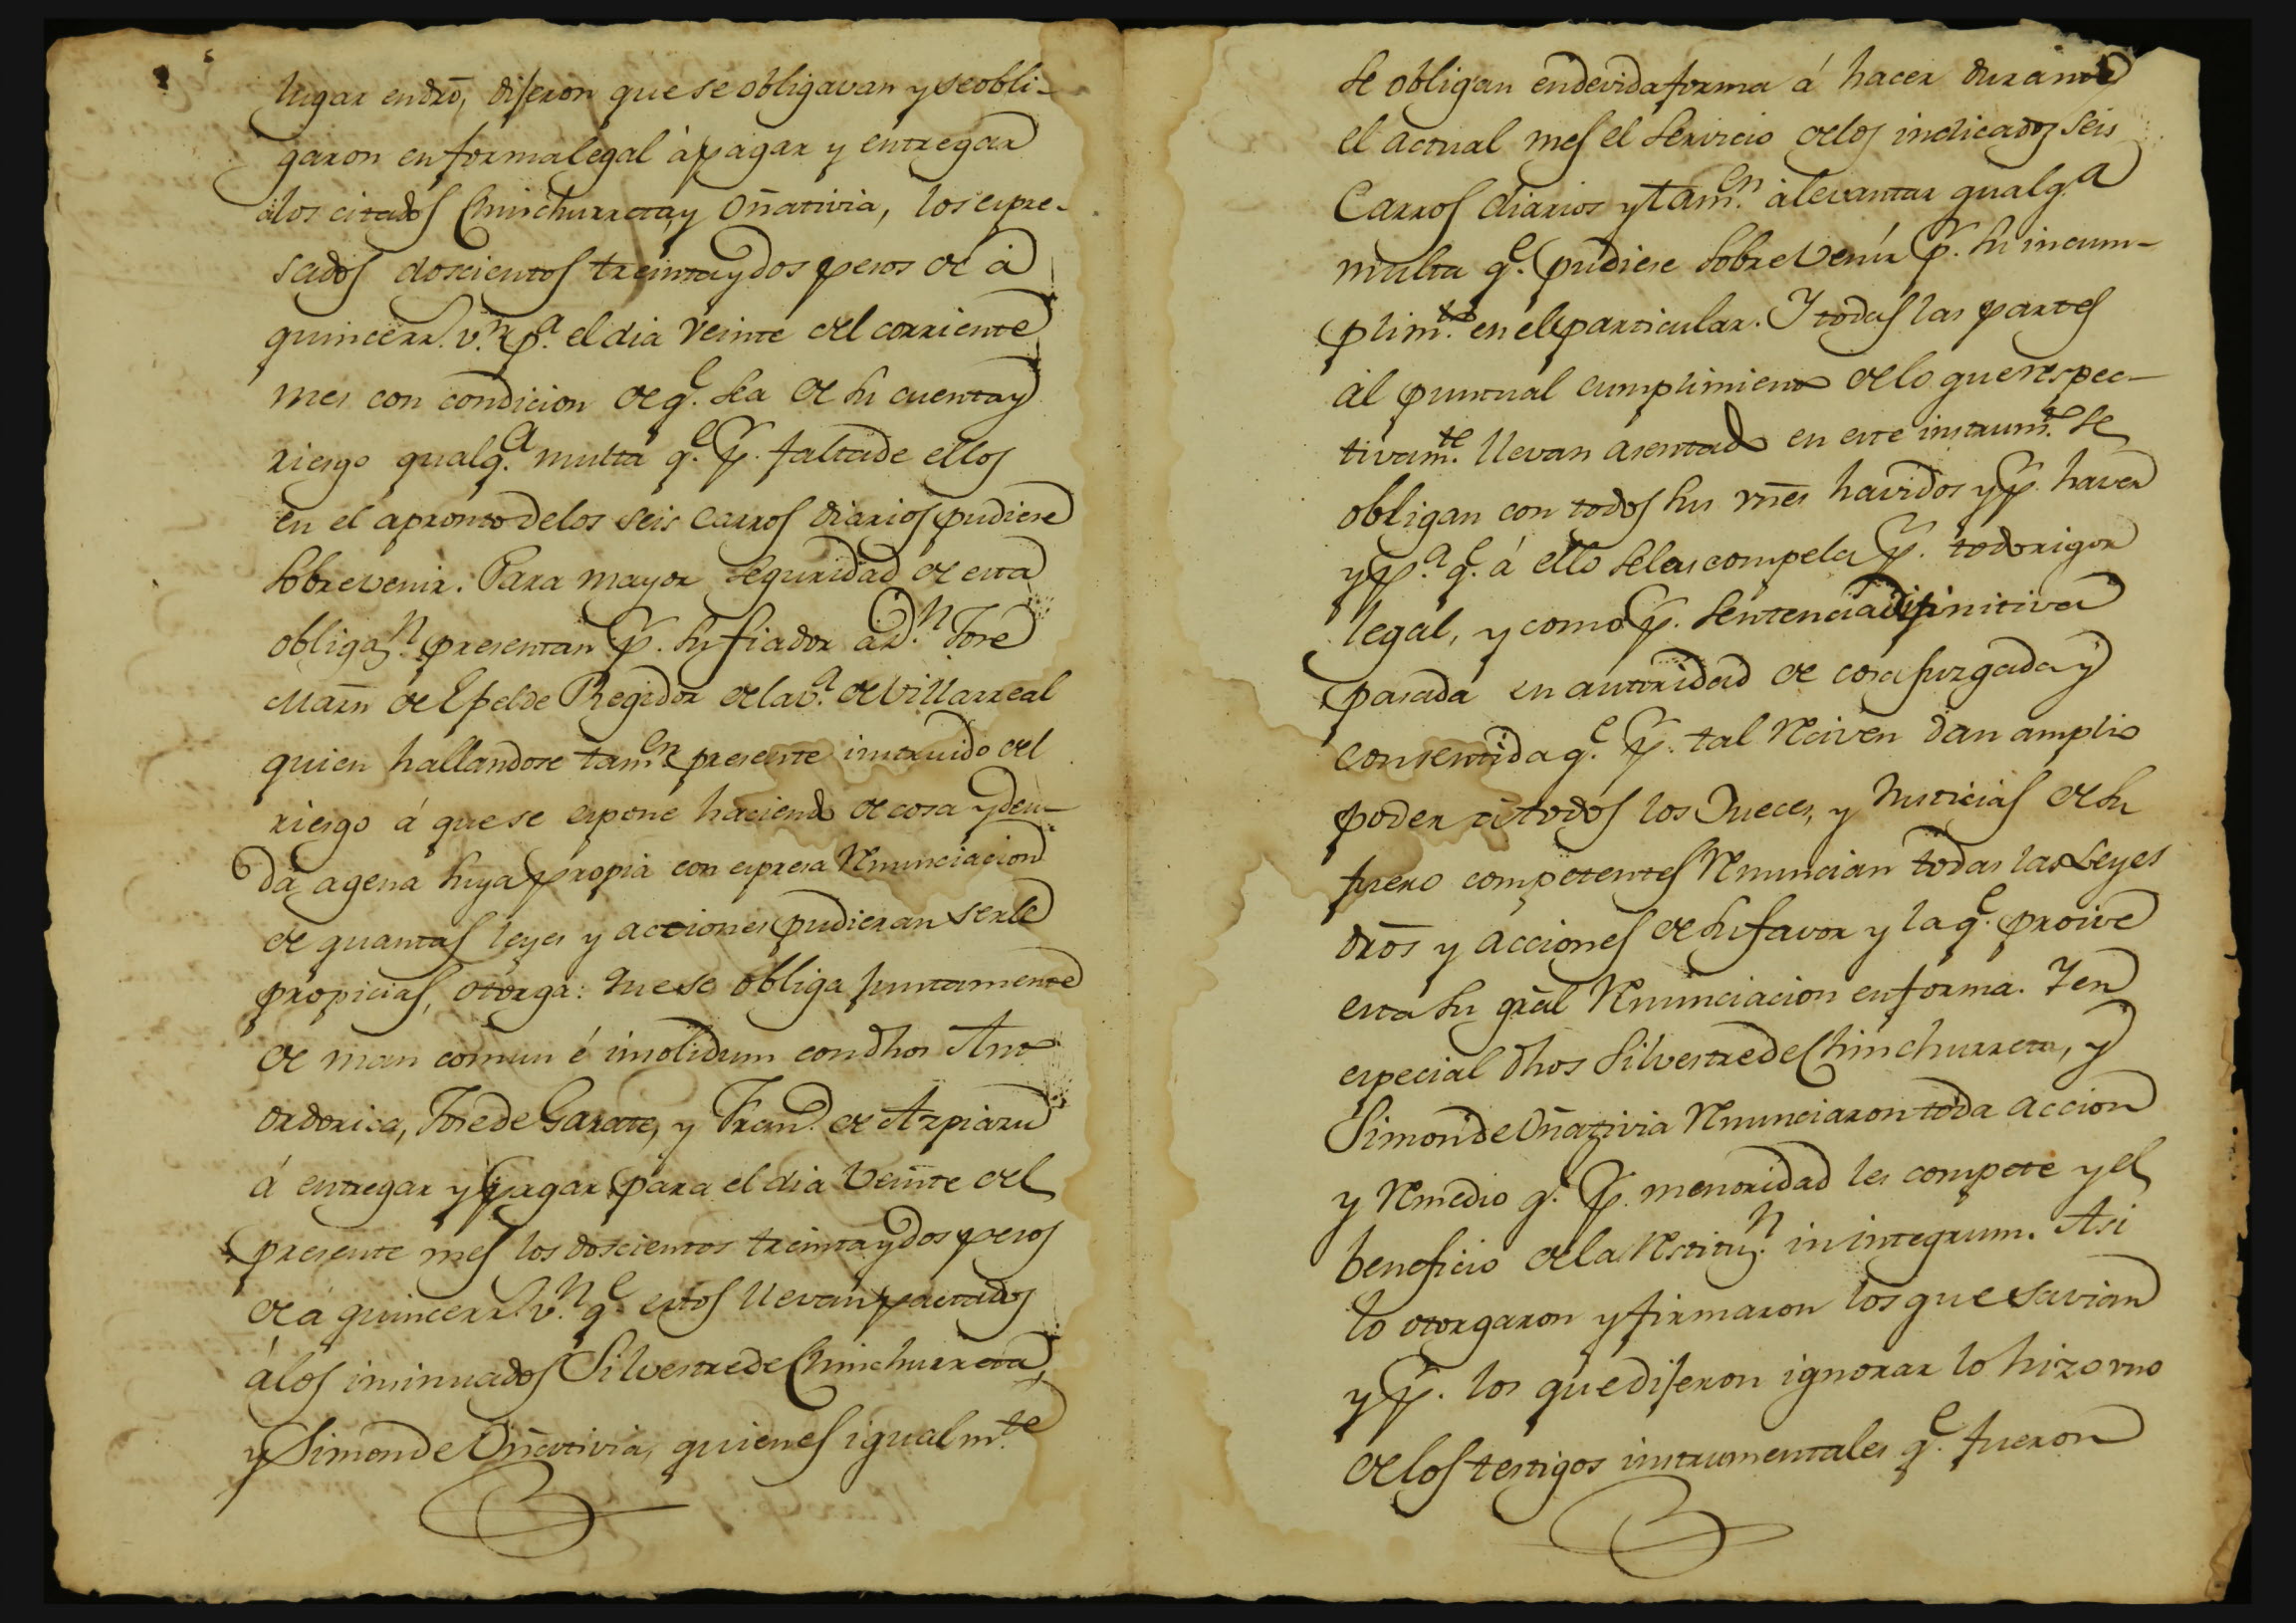 lugar en dr̃o, dijeron que se obligavan y se obli-
garon en forma legal à pagar y entregar
à los citados Chinchurreta, y Oñativia, los expre-
sados doscientos treinta y dos pesos de à
quince rr.ˢ v.ⁿ p.ᵃ el dia veinte del corriente
mes con condicion de q.ᵉ sea de su cuenta y
riesgo qualq.ᵃ multa q.ᵉ p.ʳ falta de ellos
en el apronto de los seis carros diarios pudiere
sobrevenir. Para mayor seguridad de esta
obligaz.ⁿ presentan p.ʳ su fiador à D.ⁿ José
Marñ de Elpelde Regidor de la v.ᵃ de Villarreal
quien hallandose tam.ᵉⁿ presente instruido del
riesgo á que se expone haciendo de cosa y deu-
da agena suya propia con expresa renunciacion
de quantas leyes y acciones pudieran serle
propicias, otorga: Que se obliga juntamente
de man comun é insolidum con dhos Ant.º
Ordorica, José de Garate, y Fran.ᶜᵒ de Azpiazu
á entregar y pagar para el dia veinte del
presente mes los doscientos treinta y dos pesos
de a quince rr.ˢ v.ⁿ q.ᵉ estos llevan pactados
á los insinuados Silvestre de Chinchurreta,
y Simon de Oñativia, quienes igualm.ᵗᵉ
se obligan en devida forma á hacer durante
el actual mes el servicio de los indicados seis
Carros diarios y tam.ᵉⁿ à levantar qualq.ᵃ
multa q.ᵉ pudiere sobrevenir p.ʳ su incum-
plim.ᵗᵒ en el particular. Y todas las partes
al puntual cumplimiento de lo que respec-
tivam.ᵗᵉ llevan asentado en este instrum.ᵗᵒ se
obligan con todos sus vñes havidos y p.ʳ haver
y p.ᵃ q.ᵉ á ello se les compela p.ʳ todo rigor
legal, y como p.ʳ sentencia difinitiva
pasada en autoridad de cosa juzgada y
consentida q.ᵉ p.ʳ tal reciven dan amplio
poder à todos los Jueces, y Justicias de su
fuero competentes renuncian todas las Leyes
dr̃os y acciones de su favor y la q.ᵉ proive
esta su gr̃al renunciacion en forma. Y en
especial dhos Silvestre de Chinchurreta, y
Simon de Oñativia renunciaron toda accion
y remedio q.ᵉ p.ʳ menoridad les compete y el
beneficio de la restituz.ⁿ in integrum. Asi
lo otorgaron y firmaron los que savian
y p.ʳ los que dijeron ignorar lo hizo uno
de los testigos instrumentales q.ᵉ fueron